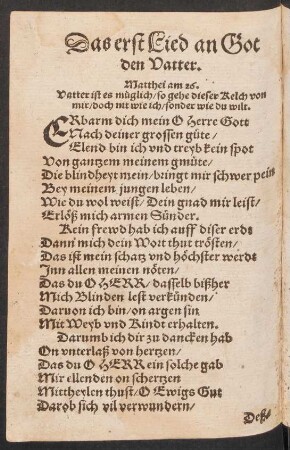 Das erst Lied an Got
den Vatter.
Matthei am 26.
Vatter ist es müglich/ so gehe dieser Kelch von
mir/ doch nit wie ich/ sonder wie du wilt.
ERbarm dich mein O Herre Gott
Nach deiner grossen güte/
Elend bin ich vnd treyb kein spot
Von gantzem meinem gmüte/
Die blindheyt mein/ bringt mir schwer pein
Bey meinem jungen leben/
Wie du wol weist/ Dein gnad mir leist/
Erlöß mich armen Sünder.
Kein frewd hab ich auff diser erdt
Dann mich dein Wort thut trösten/
Das ist mein schatz vnd höchster werdt
Inn allen meinen nöten/
Das du O HERR/ dasselb bißher
Mich Blinden lest verkünden/
Daruon ich bin/ on argen sin
Mit Weyb vnd Kindt erhalten.
Darumb ich dir zu dancken hab
On vnterlaß von hertzen/
Das du O HERR ein solche gab
Mir ellenden on schertzen
Mittheylen thust/ O Ewigs Gut
Darob sich vil verwundern/
Deß⸗